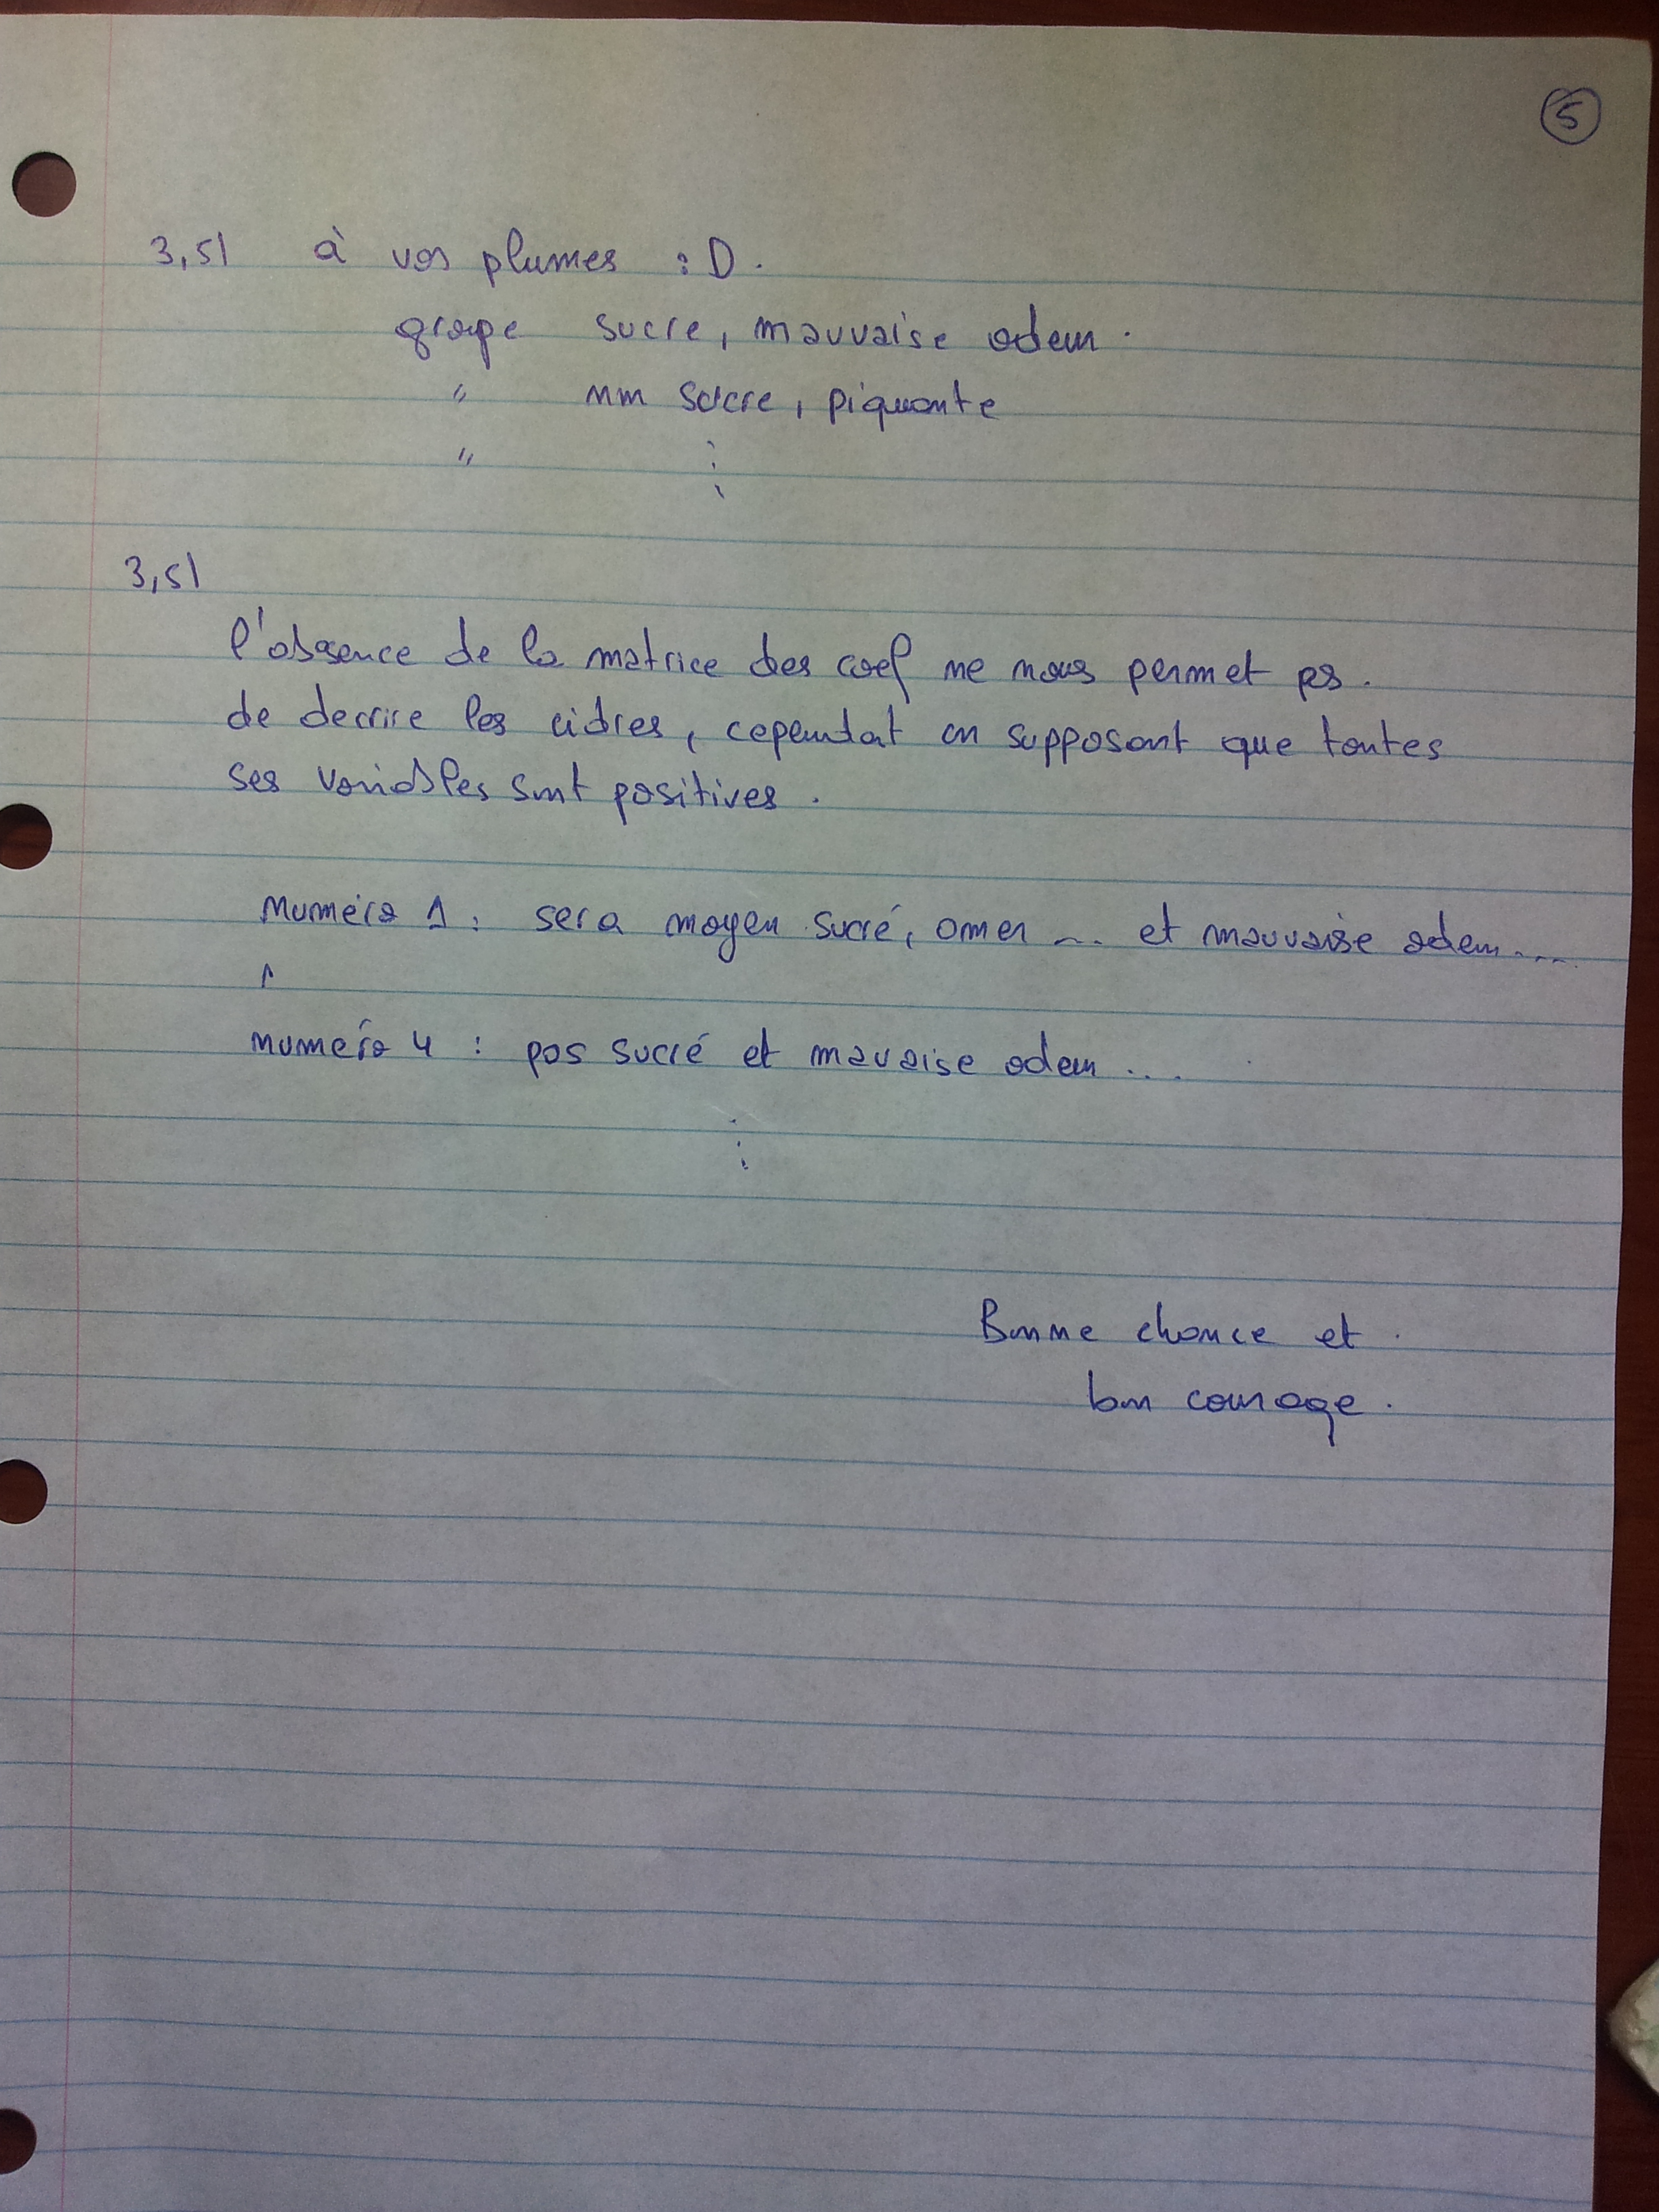 5
3,5/ à vos plumes :D.
grope sucre, mauvaise odeur.
" nm sucre, piquante
" ⋮
3,5/
l'absence de la matrice des coef ne nous permet ps.
de decrire les cidres, cependat en supposant que toutes
ses variables sont positives.
numéro 1 : sera moyen sucré, amer ... et mauvaise odeur....
numéro 4 : pas sucré et mavaise odeur ....
⋮
Bonne chance et.
bon courage.